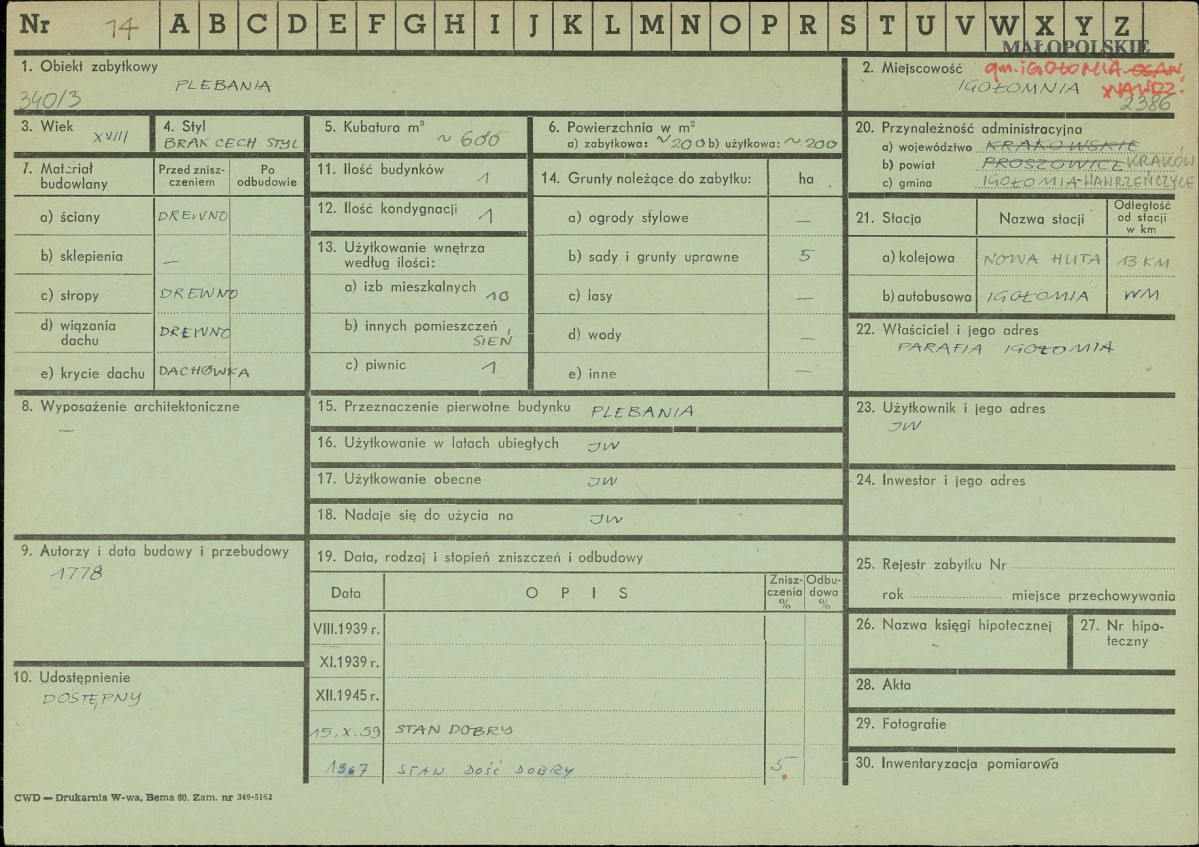 Nr 14 A B C D E F G H I J K L M N O P R S T U V W X Y Z
MAŁOPOLSKIE
1. Obiekt zabytkowy
PLEBANIA
340/3
2. Miejscowość gm. IGOŁOMIA
IGOŁOMNIA
2386
3. Wiek
XVIII
4. Styl
BRAK CECH STYL
5. Kubatura m³
~ 600
6. Powierzchnia w m²
a) zabytkowa: ~200 b) użytkowa: ~200
20. Przynależność administracyjna
a) województwo KRAKOWSKIE
b) powiat PROSZOWICE KRAKÓW
c) gmina IGOŁOMIA-WAWRZEŃCZYCE
7. Materiał budowlany
Przed zniszczeniem
Po odbudowie
a) ściany DREWNO
b) sklepienia —
c) stropy DREWNO
d) wiązania dachu DREWNO
e) krycie dachu DACHÓWKA
11. Ilość budynków 1
12. Ilość kondygnacji 1
13. Użytkowanie wnętrza
według ilości:
a) izb mieszkalnych 10
b) innych pomieszczeń
SIEŃ
c) piwnic 1
14. Grunty należące do zabytku: ha
a) ogrody stylowe —
b) sady i grunty uprawne 5
c) lasy —
d) wody —
e) inne —
21. Stacja
Nazwa stacji
Odległość od stacji w km
a) kolejowa NOWA HUTA 13 KM
b) autobusowa IGOŁOMIA WM
22. Właściciel i jego adres
PARAFIA IGOŁOMIA
8. Wyposażenie architektoniczne
—
15. Przeznaczenie pierwotne budynku PLEBANIA
16. Użytkowanie w latach ubiegłych JW
17. Użytkowanie obecne JW
18. Nadaje się do użycia na JW
23. Użytkownik i jego adres
JW
24. Inwestor i jego adres
9. Autorzy i data budowy i przebudowy
1778
19. Data, rodzaj i stopień zniszczeń i odbudowy
Data
OPIS
Zniszczenia %
Odbudowa %
VIII.1939 r.
XI.1939 r.
XII.1945 r.
15.X.59 STAN DOBRY
1967 STAN DOŚĆ DOBRY 5
25. Rejestr zabytku Nr
rok miejsce przechowywania
26. Nazwa księgi hipotecznej
27. Nr hipoteczny
10. Udostępnienie
DOSTĘPNY
28. Akta
29. Fotografie
30. Inwentaryzacja pomiarowa
CWD — Drukarnia W-wa, Bema 60. Zam. nr 349-5162